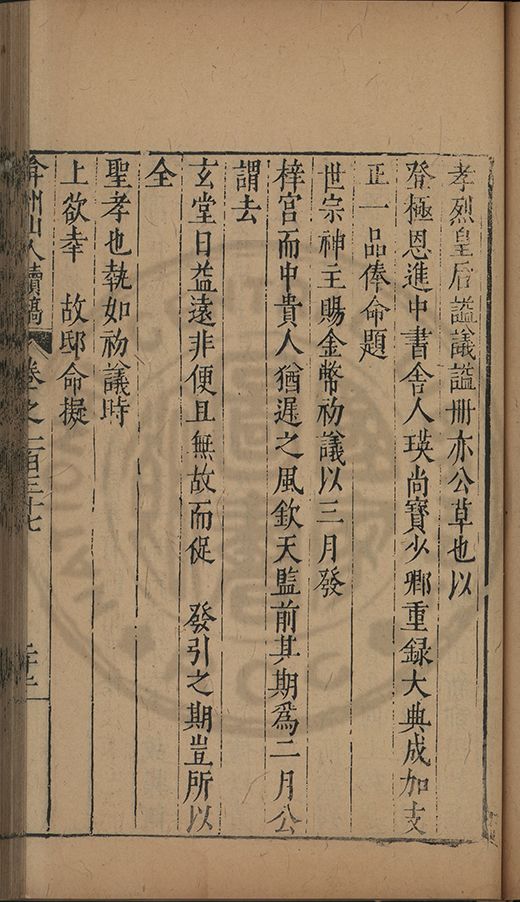 孝烈皇后謚議謚冊亦公草也以
登極恩進中書舍人瑛尚寶少卿重録大典成加支
正一品俸命題
世宗神主賜金幣初議以三月發
梓宮而中貴人猶遲之風欽天監前其期爲二月公
謂去
玄堂日益遠非便且無故而促 發引之期豈所以
全
聖孝也執如初議時
上欲幸 故邸命擬
弇州山人續稿 卷之一百三十七